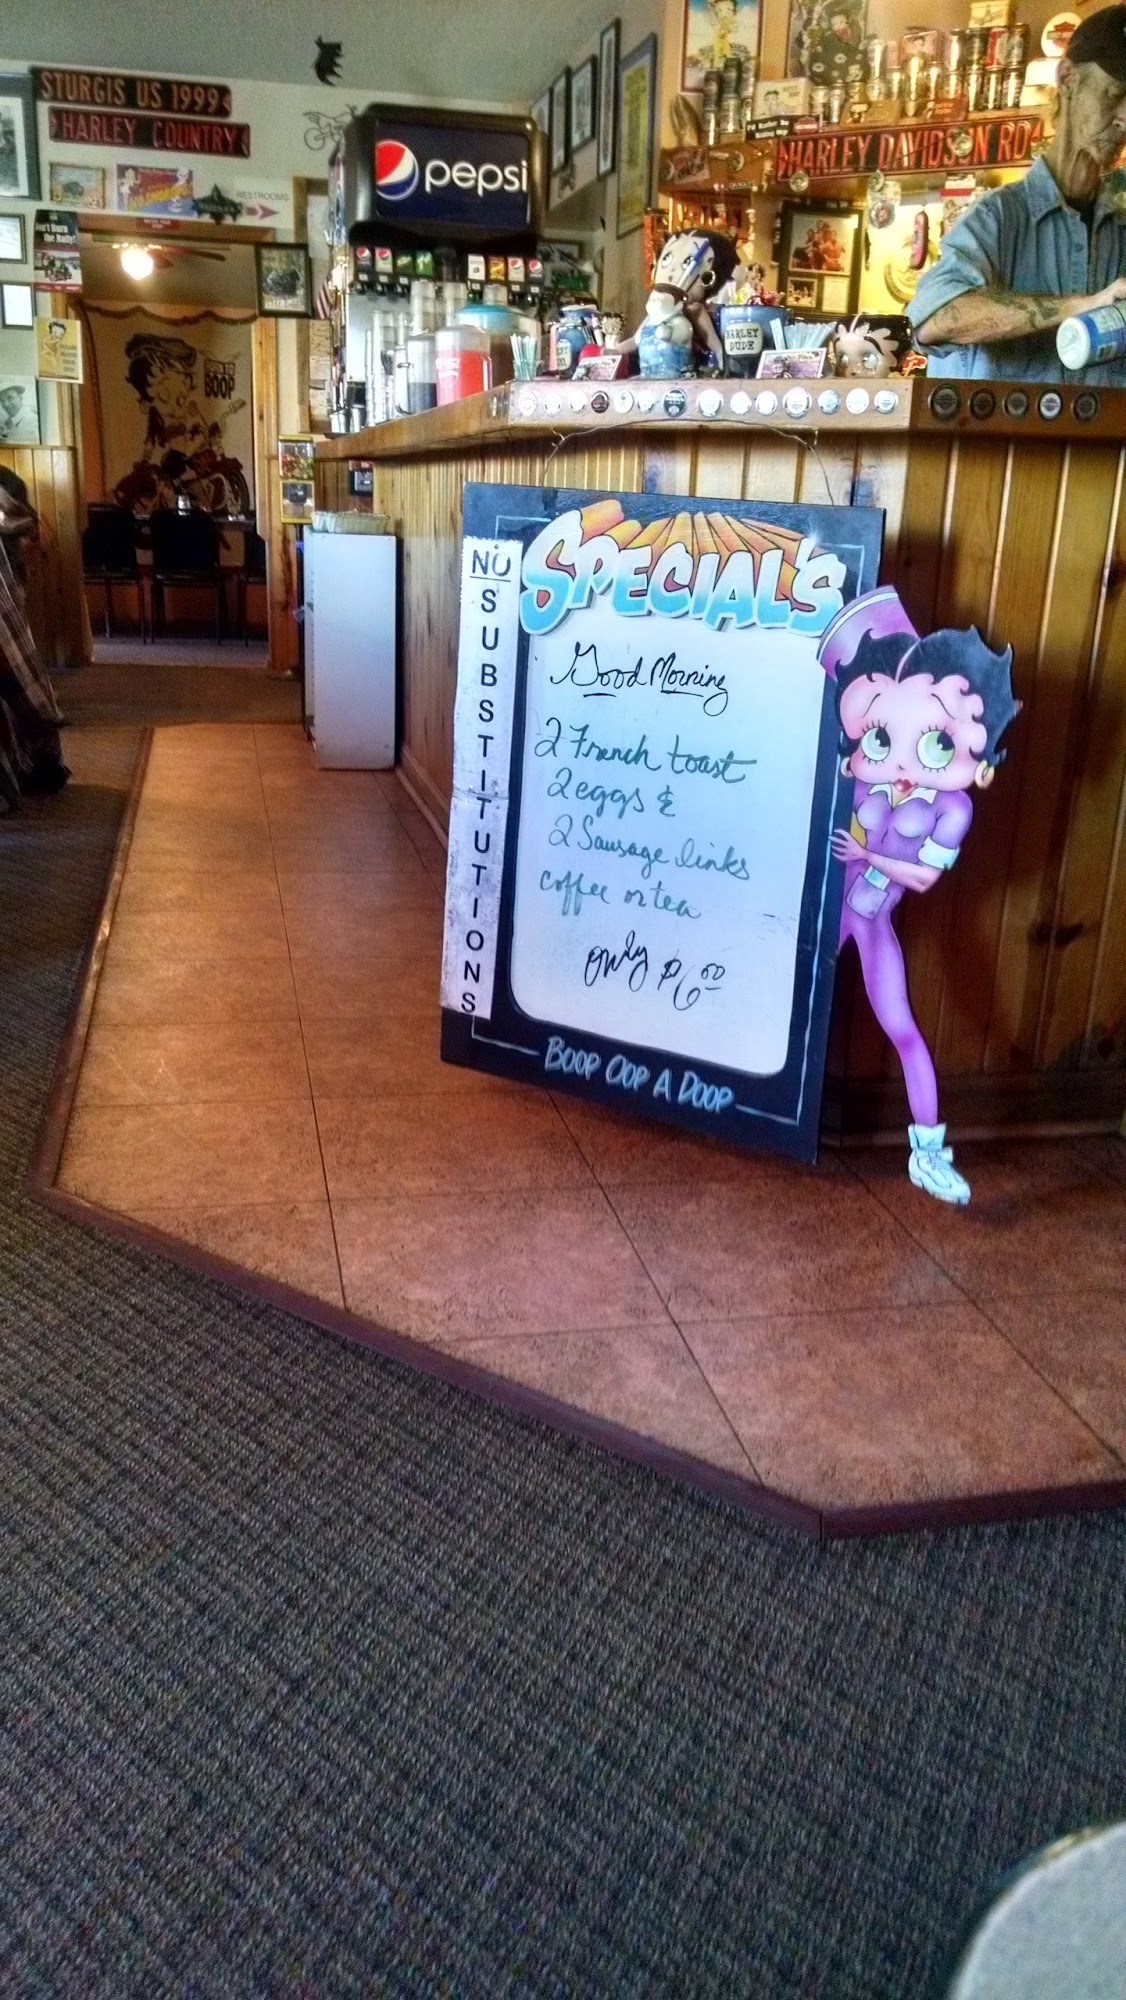 STURGIS US 1999
HARLEY COUNTRY
RESTROOMS
pepsi
HARLEY DAVIDSON RD
the Rally!
BOOP
HARLEY
DUDE
NO
SUBSTITUTIONS
SPECIAL'S
Good Morning
2 French toast
2 eggs &
2 Sausage links
coffee or tea
only $6.00
BOOP OOP A DOOP